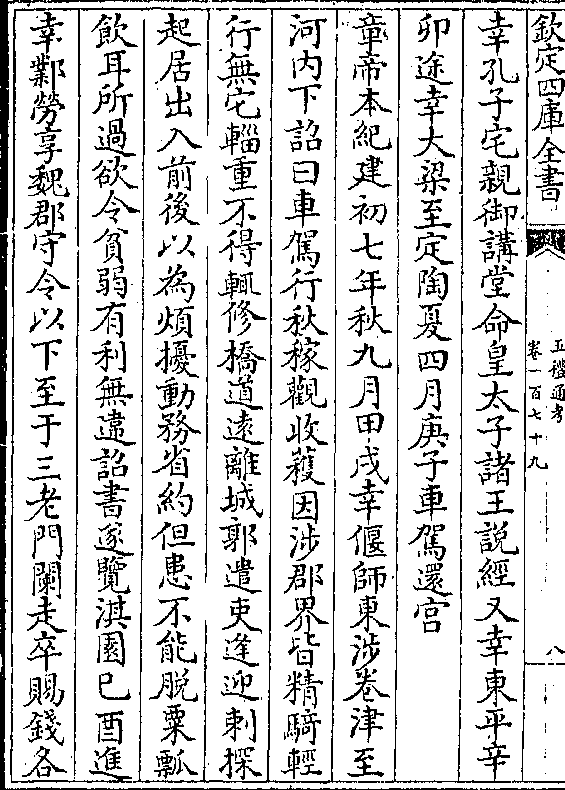 欽定四庫全書
五禮通考
卷一百七十九
八
幸孔子宅親御講堂命皇太子諸王説經又幸東平辛
卯途幸大梁至定陶夏四月庚子車駕還宫
章帝本紀建初七年秋九月甲戌幸偃師東涉卷津至
河内下詔曰車駕行秋稼觀收穫因涉郡界皆精騎輕
行無它輜重不得輒修橋道遠離城郭遣吏逢迎刺探
起居出入前後以為煩擾動務省約但患不能脱粟瓢
飲耳所過欲令貧弱有利無違詔書遂覽淇園己酉進
幸鄴勞享魏郡守令以下至于三老門闌走卒賜錢各